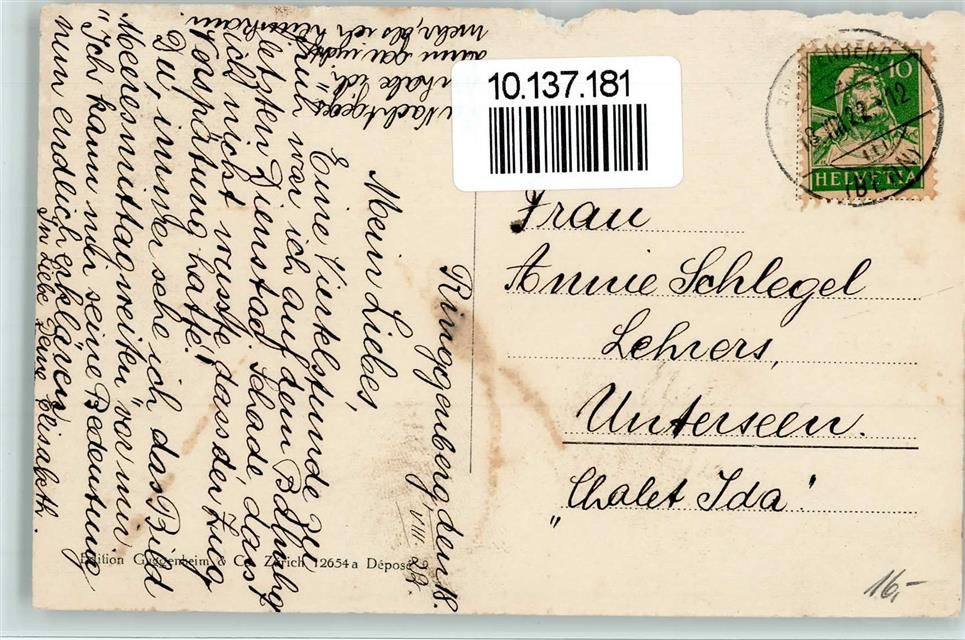 10.137.181
10
HELVETIA
Frau
Annie Schlegel
Lehrers,
Unterseen.
„Chalet Ida".
16,-
Ringgenberg, den 18.
VIII 22.
Mein Liebes,
Eine Viertelstunde zu
früh war ich auf dem Bahnhof
letzten Dienstag! Schade, dass
ich nicht wusste, dass der Zug
Verspätung hatte!
Du, immer sehe ich das Bild
„Meeresmittagweiten" vor mir
Ich kann mir seine Bedeutung
nun endlich erklären!
In Liebe Deine Elisabeth.
habe ich,
gar nicht
mehr, als ich heimkam
Edition Guggenheim & Co. Zürich 12654 a Déposé